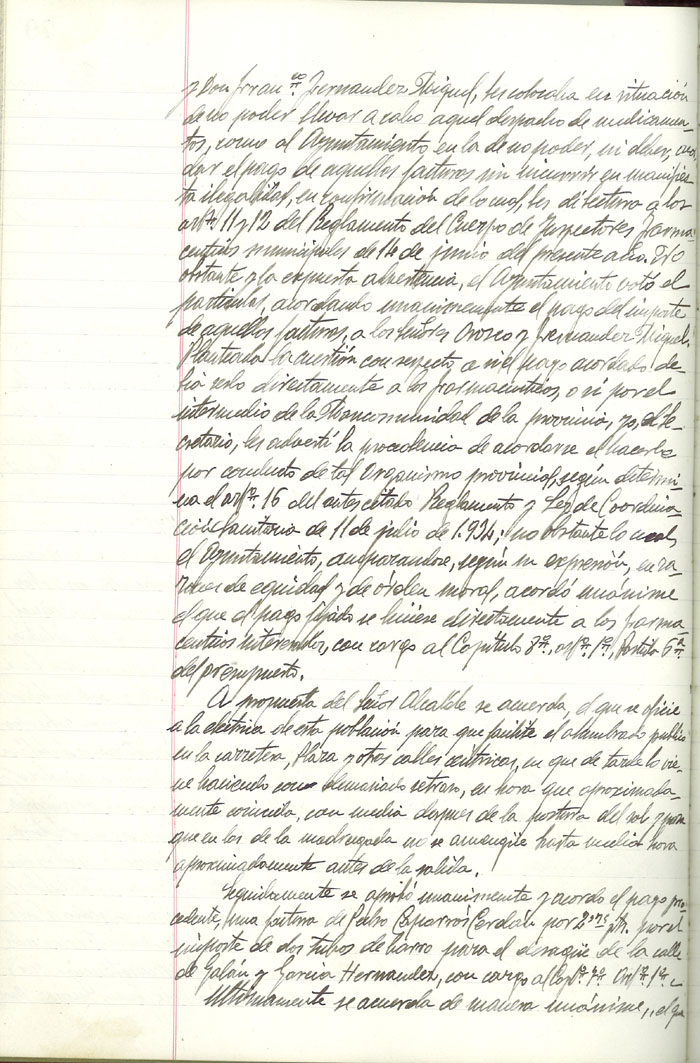 y Don Fran.co Fernandez Miguel, les colocaba en situación
de no poder llevar a cabo aquel despacho de medicamen-
tos, como al Ayuntamiento en la de no poder, ni deber, acor
dar el pago de aquellas facturas sin incurrir en manifies
ta ilegalidad, en confirmación de lo cual, les di lectura a los
artos 11 y 12 del Reglamento del Cuerpo de Inspectores Farma-
céuticos municipales de 14 de junio del presente año. No
obstante y la expuesta advertencia, el Ayuntamiento votó el
particular, acordando unanimemente el pago del importe
de aquellas facturas, a los señores Orozco y Fernandez Miguel.
Planteada la cuestión con respecto a si el pago acordado de
bía serlo directamente a los farmacéuticos, o si por el
intermedio de la Mancomunidad de la provincia, yo, el Se-
cretario, les advertí la procedencia de acordarse el hacerlo
por conducto de tal Organismo provincial, según determi-
na el artº. 16 del antes citado Reglamento y Ley de Coordina
ción Sanitaria de 11 de julio de 1.934; no obstante lo cual
el Ayuntamiento, amparandose, según su expresión, en ra-
zones de equidad y de órden moral, acordó unánime
el que el pago fijado se hiciese directamente a los farma
céuticos interesados, con cargo al Capítulo 8º, artº. 1º, Partida 6ª
del presupuesto.
A propuesta del Señor Alcalde se acuerda, el que se oficie
a la eléctrica de esta población para que facilite el alumbrado público
en la carretera, Plaza y otras calles céntricas, en que de tarde lo vie-
ne haciendo con demasiado retraso, en hora que aproximada-
mente coincida, con media despues de la postura del sol y para
que en las de la madrugada no se amengüe hasta media hora
aproximadamente antes de la salida.
Seguidamente se aprobó unanimemente y acordo el pago pro-
cedente, una factura de Pedro Caparros Cerdán por 2 pts. por el
importe de dos tubos de barro para el desagüe de la calle
de Galán y Garcia Hernandez, con cargo al Capº. 7º. Artº. 1º.
Ultimamente se acuerda de manera unánime, el que